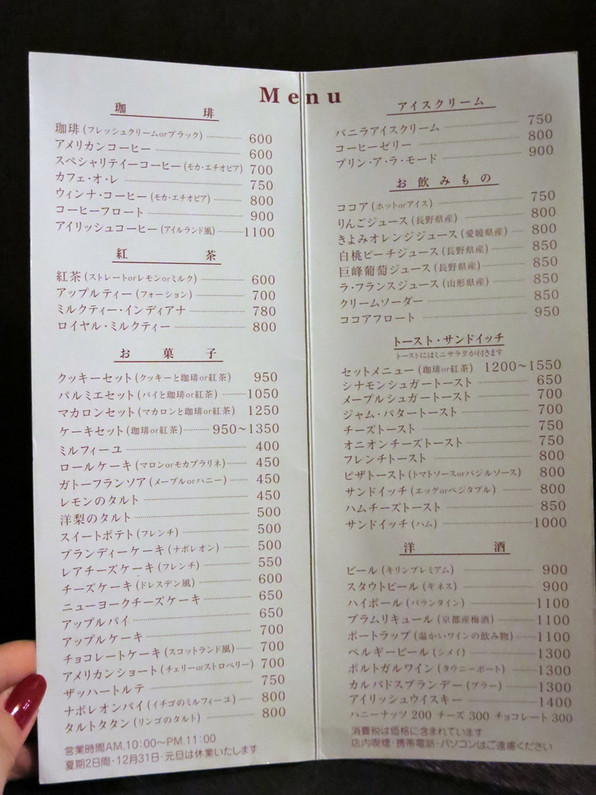 Menu
珈琲
珈琲 (フレッシュクリームorブラック) 600
アメリカンコーヒー 600
スペシャリティーコーヒー (モカ・エチオピア) 700
カフェ・オ・レ 750
ウィンナ・コーヒー (モカ・エチオピア) 800
コーヒーフロート 900
アイリッシュコーヒー (アイルランド風) 1100
紅茶
紅茶 (ストレートorレモンorミルク) 600
アップルティー (フォーション) 700
ミルクティー・インディアナ 780
ロイヤル・ミルクティー 800
お菓子
クッキーセット (クッキーと珈琲or紅茶) 950
パルミエセット (パイと珈琲or紅茶) 1050
マカロンセット (マカロンと珈琲or紅茶) 1250
ケーキセット (珈琲or紅茶) 950~1350
ミルフィーユ 400
ロールケーキ (マロンorモカプラリネ) 450
ガトーフランソア (メープルorハニー) 450
レモンのタルト 450
洋梨のタルト 500
スイートポテト (フレンチ) 500
ブランディーケーキ (ナポレオン) 500
レアチーズケーキ (フレンチ) 550
チーズケーキ (ドレスデン風) 600
ニューヨークチーズケーキ 650
アップルパイ 650
アップルケーキ 700
チョコレートケーキ (スコットランド風) 700
アメリカンショート (チェリーorストロベリー) 700
ザッハートルテ 750
ナポレオンパイ (イチゴのミルフィーユ) 800
タルトタタン (リンゴのタルト) 800
営業時間AM.10:00~PM.11:00
夏期2日間・12月31日・元旦は休業いたします
アイスクリーム
バニラアイスクリーム 750
コーヒーゼリー 800
プリン・ア・ラ・モード 900
お飲みもの
ココア (ホットorアイス) 750
りんごジュース (長野県産) 800
きよみオレンジジュース (愛媛県産) 800
白桃ピーチジュース (長野県産) 850
巨峰葡萄ジュース (長野県産) 850
ラ・フランスジュース (山形県産) 850
クリームソーダー 850
ココアフロート 950
トースト・サンドイッチ
トーストにはミニサラダが付きます
セットメニュー (珈琲or紅茶) 1200~1550
シナモンシュガートースト 650
メープルシュガートースト 700
ジャム・バタートースト 700
チーズトースト 750
オニオンチーズトースト 750
フレンチトースト 800
ピザトースト (トマトソースorバジルソース) 800
サンドイッチ (エッグorベジタブル) 800
ハムチーズトースト 850
サンドイッチ (ハム) 1000
洋酒
ビール (キリンプレミアム) 900
スタウトビール (ギネス) 900
ハイボール (バランタイン) 1100
プラムリキュール (京都産梅酒) 1100
ポートラップ (温かいワインの飲み物) 1100
ベルギービール (シメイ) 1300
ポルトガルワイン (タウニーポート) 1300
カルバドスブランデー (ブラー) 1300
アイリッシュウイスキー 1400
ハニーナッツ 200 チーズ 300 チョコレート 300
消費税は価格に含まれています
店内喫煙・携帯電話・パソコンはご遠慮ください